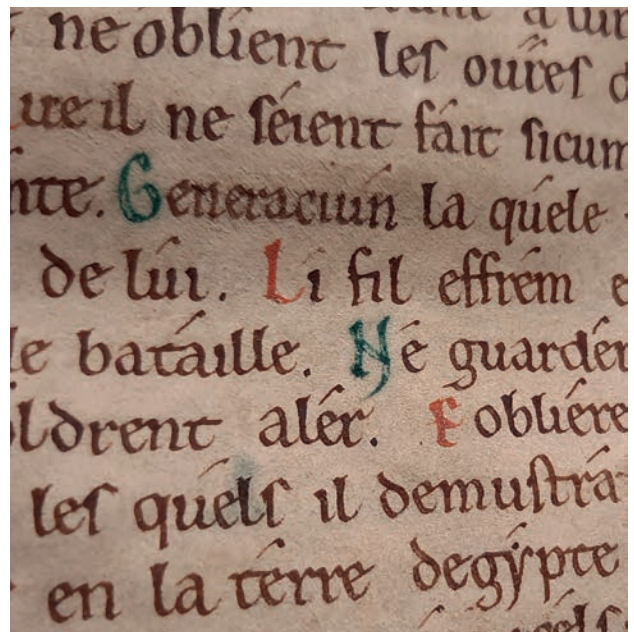 ne oblient les ouſes
ne ſéient fáit ſicum
Generaciún la quéle
de lúi. Li fil effrém
batáille. Né guardér
ldrent alér. E obliére
leſ quéls il demuſtrá
en la térre degẏpte